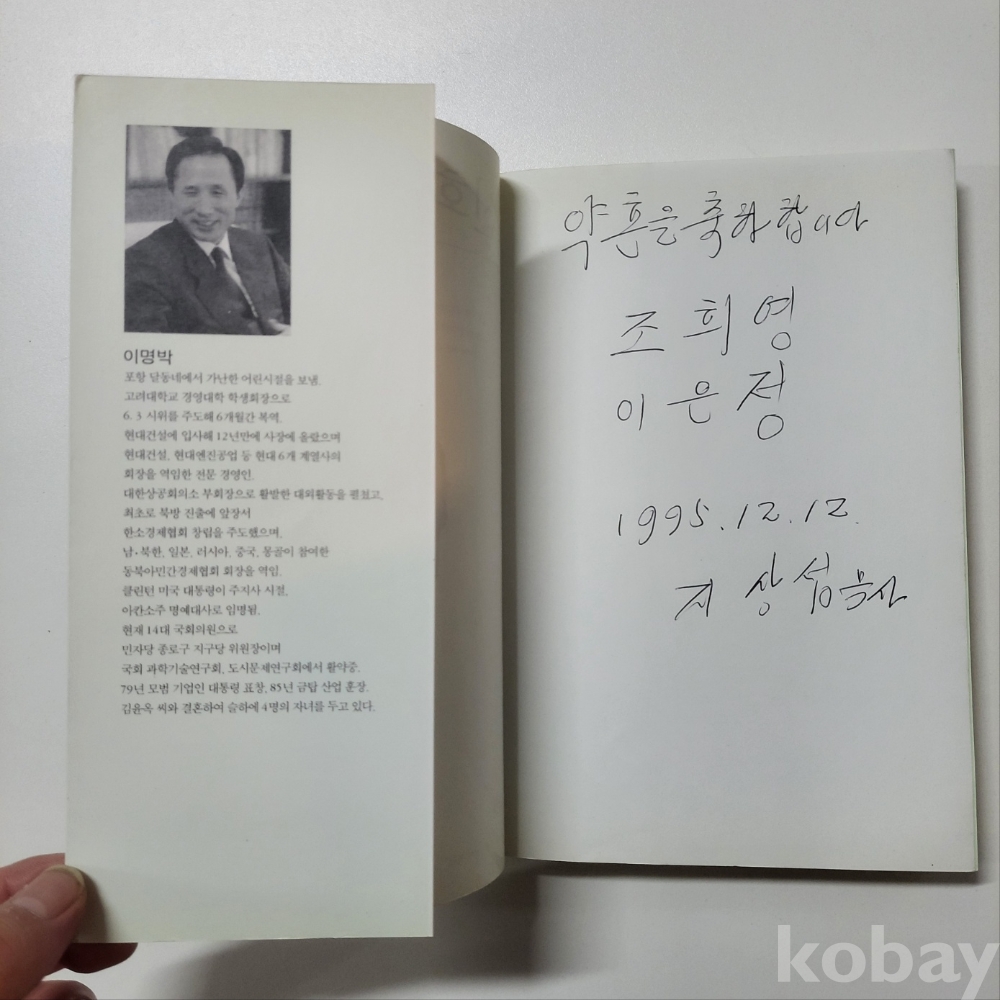 이명박
포항 달동네에서 가난한 어린시절을 보냄.
고려대학교 경영대학 학생회장으로
6. 3 시위를 주도해 6개월간 복역.
현대건설에 입사해 12년만에 사장에 올랐으며
현대건설, 현대엔진공업 등 현대 6개 계열사의
회장을 역임한 전문 경영인.
대한상공회의소 부회장으로 활발한 대외활동을 펼쳤고,
최초로 북방 진출에 앞장서
한소경제협회 창립을 주도했으며,
남·북한, 일본, 러시아, 중국, 몽골이 참여한
동북아민간경제협회 회장을 역임.
클린턴 미국 대통령이 주지사 시절,
아칸소주 명예대사로 임명됨.
현재 14대 국회의원으로
민자당 종로구 지구당 위원장이며
국회 과학기술연구회, 도시문제연구회에서 활약중.
79년 모범 기업인 대통령 표창, 85년 금탑 산업 훈장.
김윤옥 씨와 결혼하여 슬하에 4명의 자녀를 두고 있다.
약혼을 축하합니다
조희영
이은정
1995. 12. 12.
지상섭 목사
kobay